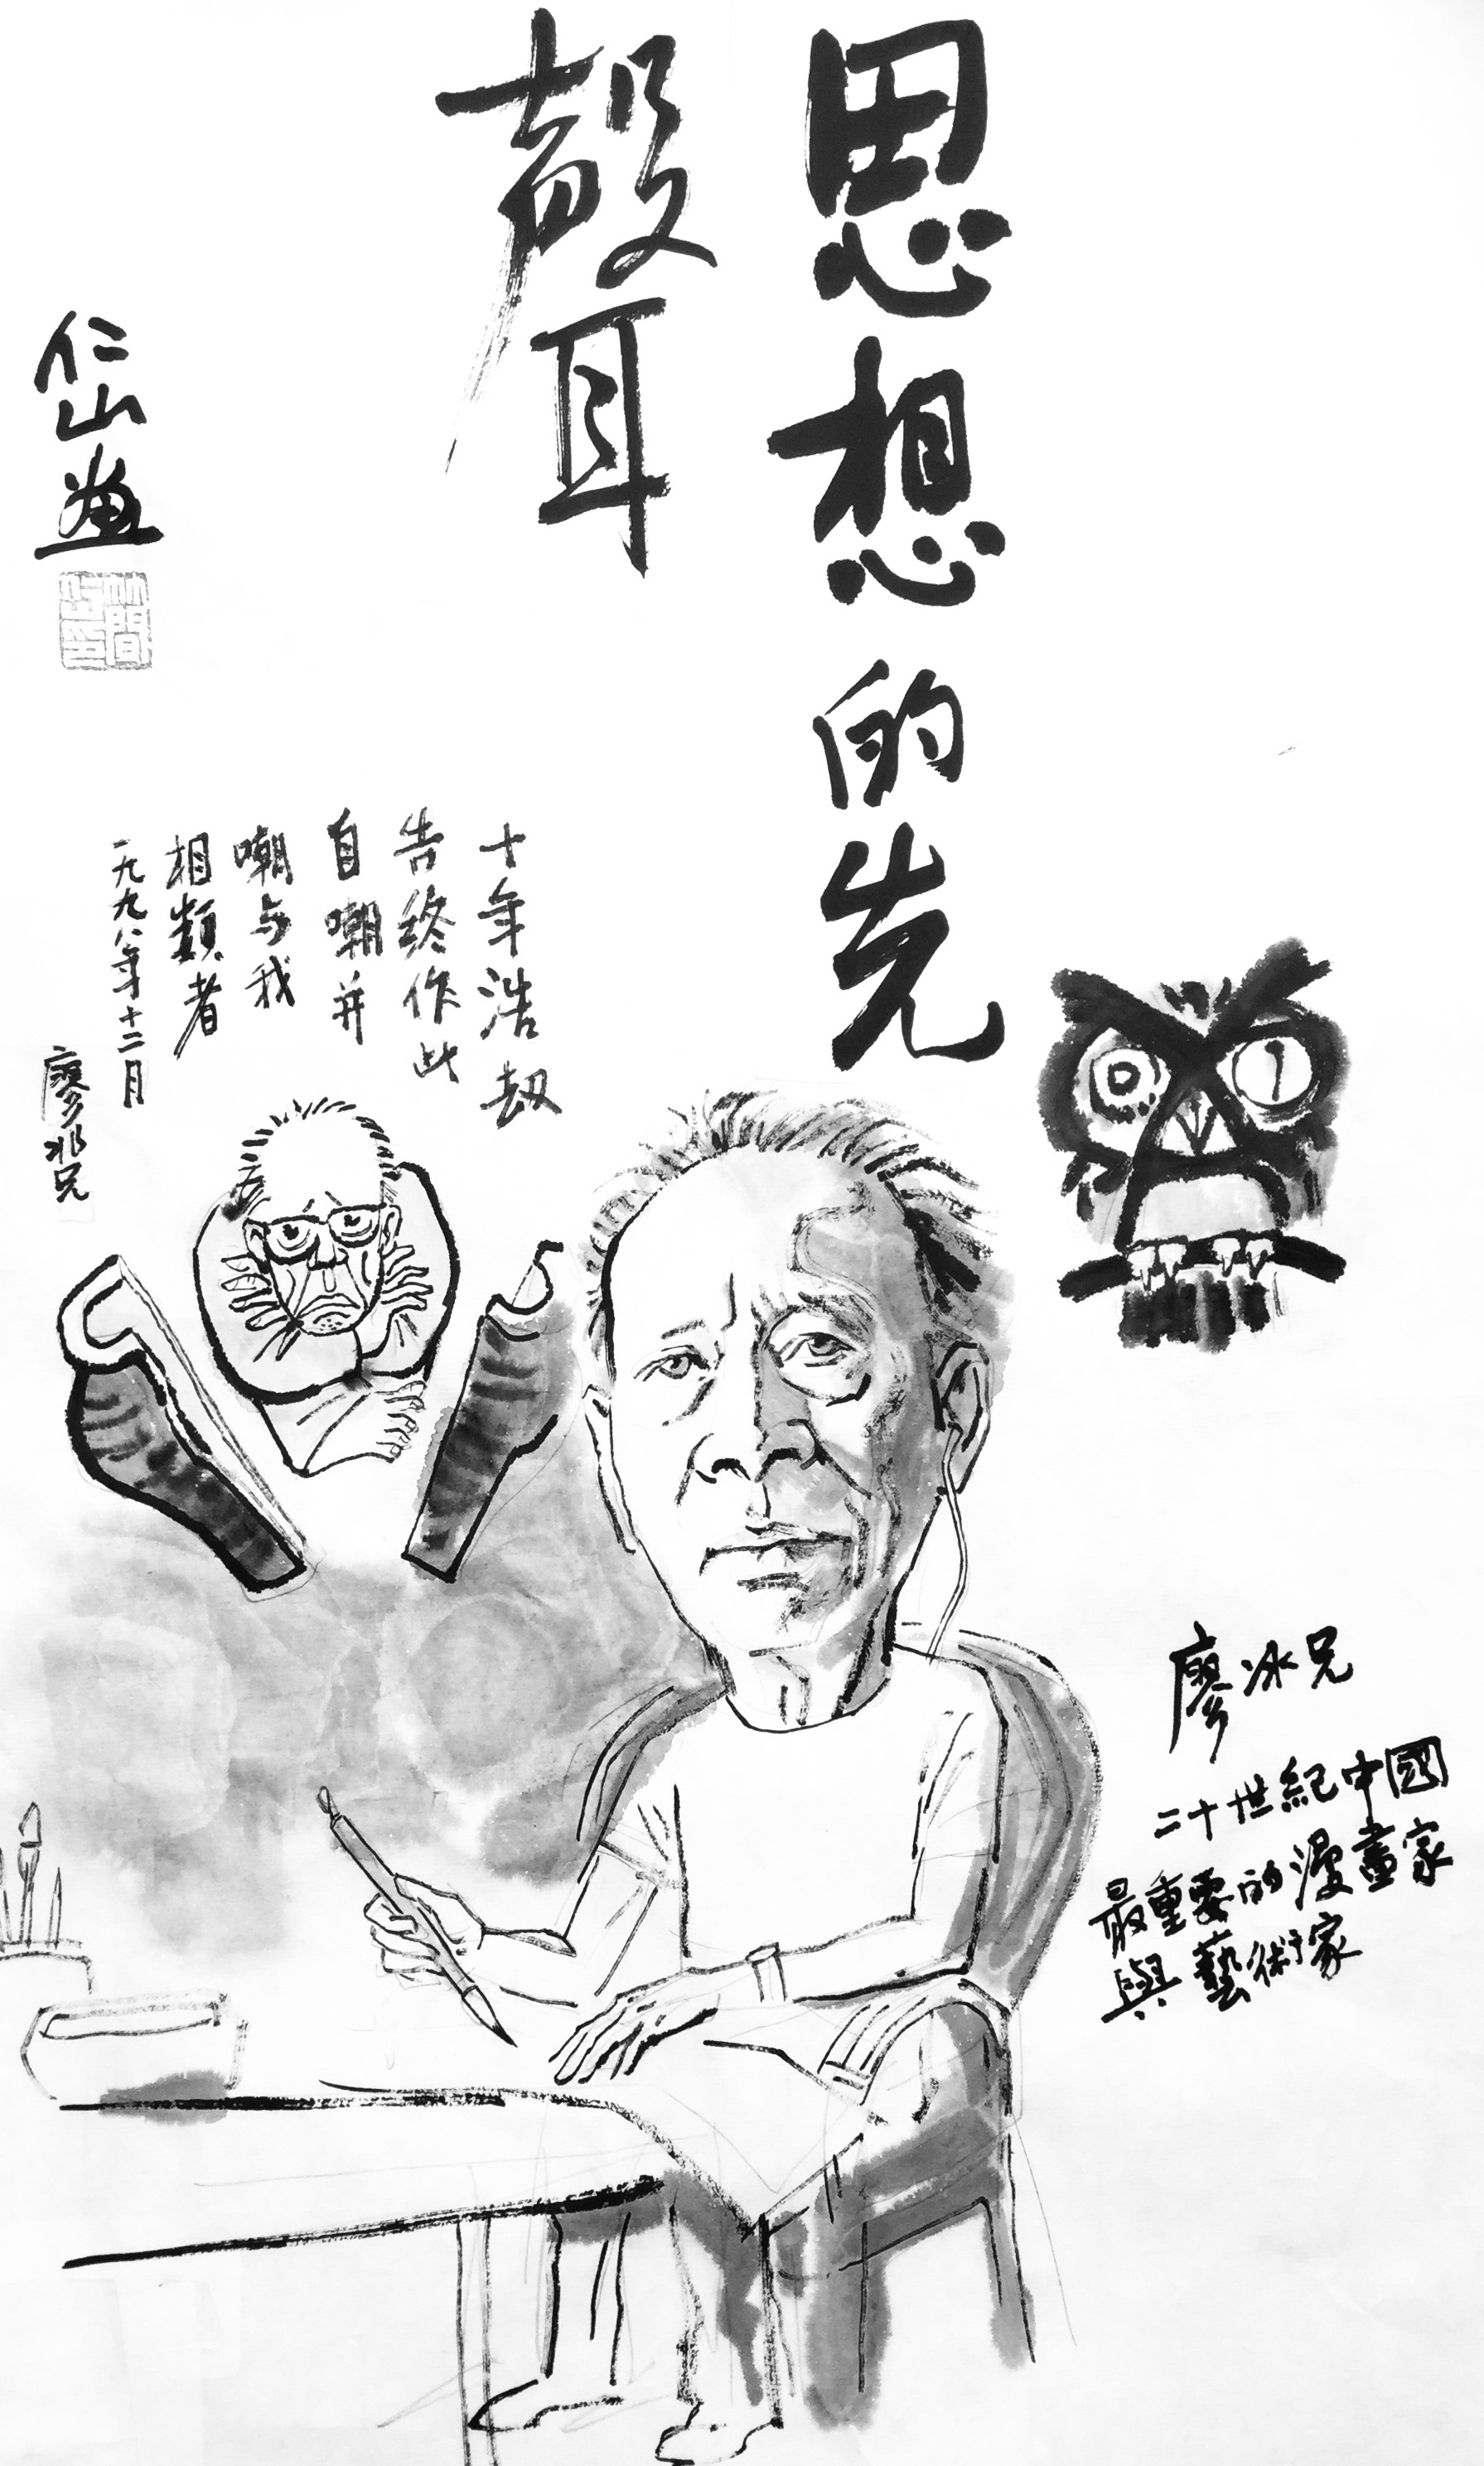 思想的先
聲
仁山畫
十年浩刼
告終作此
自嘲并
嘲与我
相類者
一九九八年十二月
廖冰兄
廖冰兄
二十世紀中國
最重要的漫畫家
與藝術家